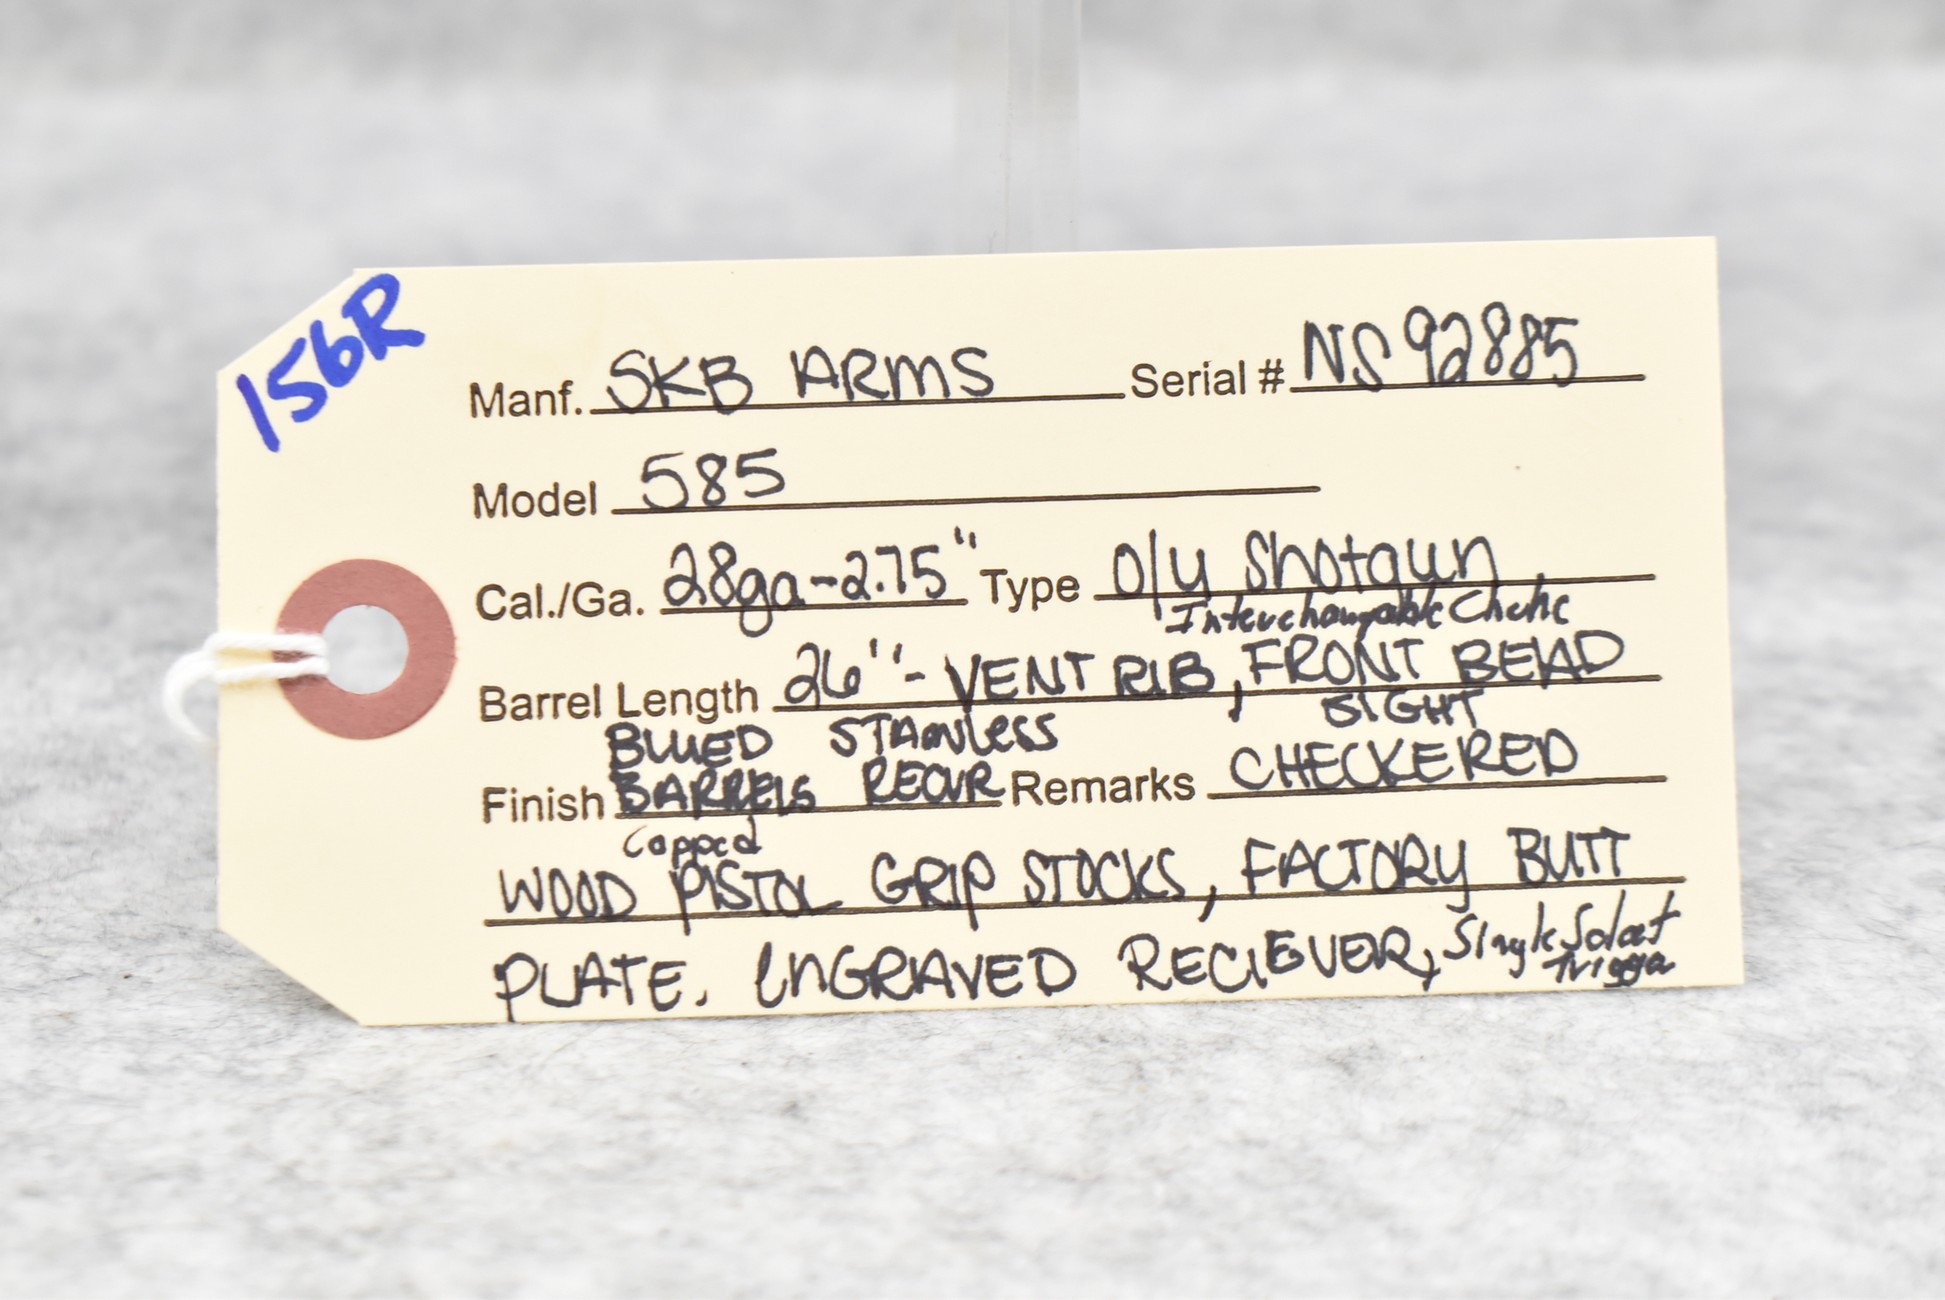 156R
Manf. SKB ARMS Serial # NS92885
Model 585
Cal./Ga. 28ga-2.75" Type O/U Shotgun
Interchangable Choke
Barrel Length 26"- VENT RIB, FRONT BEAD
SIGHT
BLUED STAINLESS
Finish BARRELS RECVR Remarks CHECKERED
Capped
WOOD PISTOL GRIP STOCKS, FACTORY BUTT
PLATE. ENGRAVED RECIEVER, Single Select
Trigger